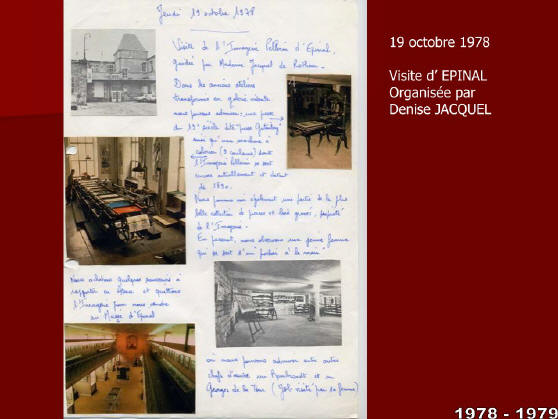 Jeudi 19 octobre 1978
Visite de l'Imagerie Pellerin d'Epinal,
guidée par Madame Jacquel de Rothau.
Dans les anciens ateliers
transformés en galerie
nous pouvons admirer : une presse
du 19° siècle dite "presse Gutenberg"
ainsi qu'une machine à
colorier (9 couleurs) dont
l'Imagerie Pellerin se sert
encore actuellement et datant
de 1890.
Nous pouvons voir également une partie de la plus
belle collection de pierres et bois gravés, propriété
de l'Imagerie.
En passant, nous observons une jeune femme
qui se sert d'un "pochoir à la main"
Nous achetons quelques souvenirs à
rapporter en Alsace et quittons
l'Imagerie pour nous rendre
au Musée d'Epinal
où nous pouvons admirer entre autres
chefs d'œuvre un Rembrandt et un
Georges de la Tour (Job visité par sa femme)
19 octobre 1978
Visite d' EPINAL
Organisée par
Denise JACQUEL
1978 - 1979